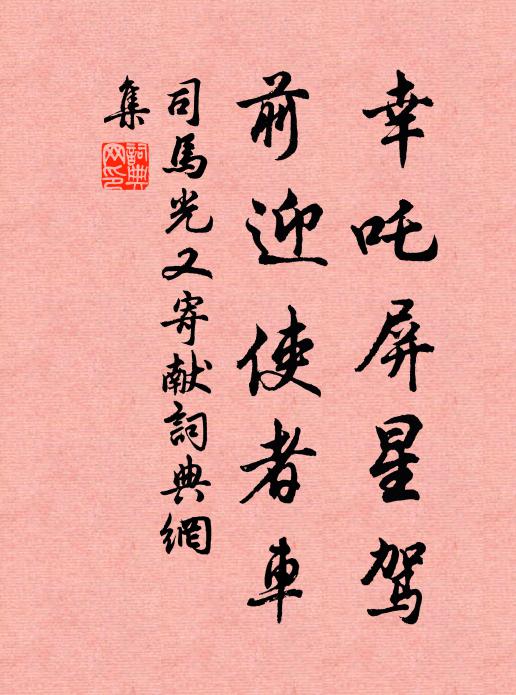 幸吒屏星駕
前迎使者車
司馬光又寄献詞典網
集
詞典網印